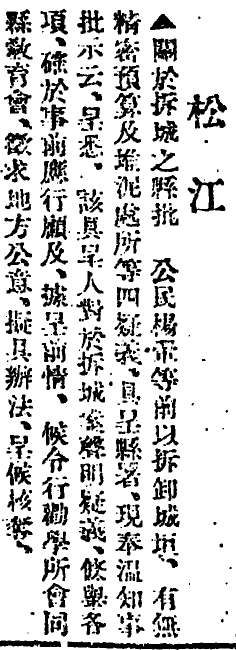 松江
▲關於拆城之縣批　公民楊□等前以拆卸城垣、有無
精密預算及堆泥處所等四疑義、具呈縣署、現奉溫知事
批示云、呈悉、該具呈人對於拆城□聲明疑義、條舉各
項、確於事前應行顧及、據呈前情、候令行勸學所會同
縣敎育會、徵求地方公意、擬具辦法、呈候核奪、